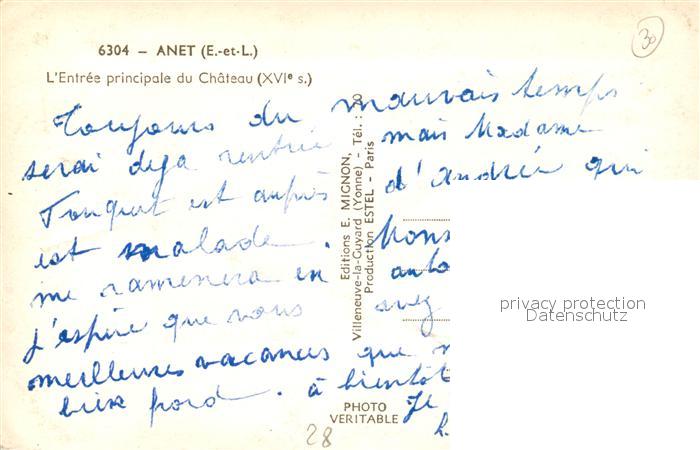 6304 – ANET (E.-et-L.)
L'Entrée principale du Château (XVIe s.)
30
Toujours du mauvais temps
serai deja rentrée mais Madame
Touquet est auprès d'Andrée qui
est malade. Mons
me ramenera en auto
j'espère que vous avez
meilleures vacances que
bien froid. à bientôt
Je
Editions E. MIGNON,
Villeneuve-la-Guyard (Yonne) – Tél. : 20
Production ESTEL - Paris
PHOTO
VERITABLE
28
privacy protection
Datenschutz